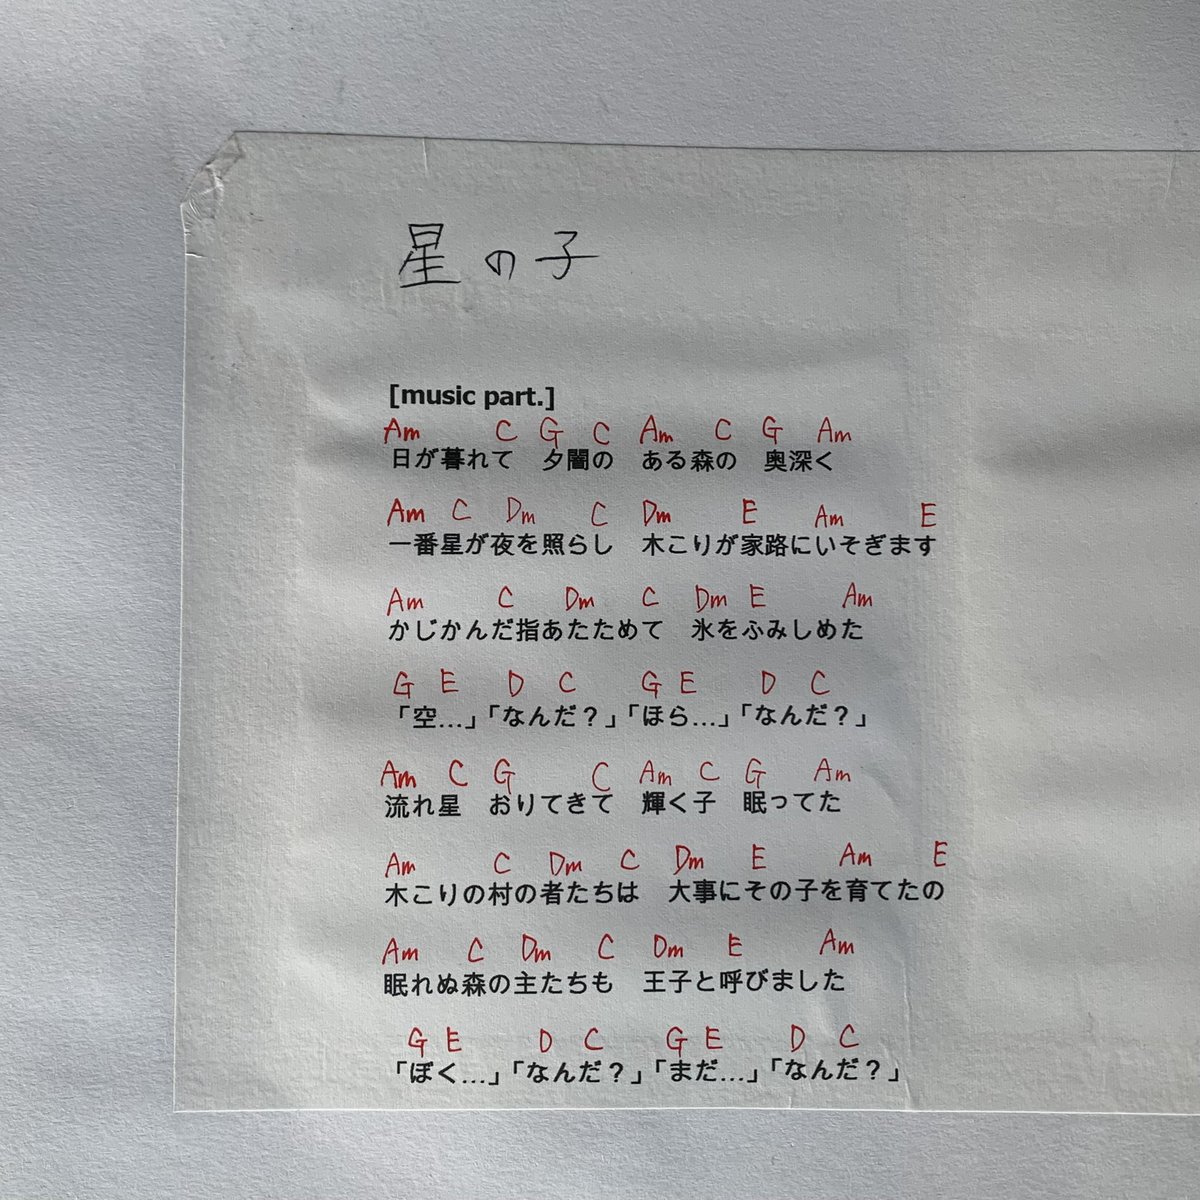 星の子
[music part.]
Am C G C Am C G Am
日が暮れて　夕闇の　ある森の　奥深く
Am C Dm C Dm E Am E
一番星が夜を照らし　木こりが家路にいそぎます
Am C Dm C Dm E Am
かじかんだ指あたためて　氷をふみしめた
G E D C G E D C
「空…」「なんだ？」「ほら…」「なんだ？」
Am C G C Am C G Am
流れ星　おりてきて　輝く子　眠ってた
Am C Dm C Dm E Am E
木こりの村の者たちは　大事にその子を育てたの
Am C Dm C Dm E Am
眠れぬ森の主たちも　王子と呼びました
G E D C G E D C
「ぼく…」「なんだ？」「まだ…」「なんだ？」